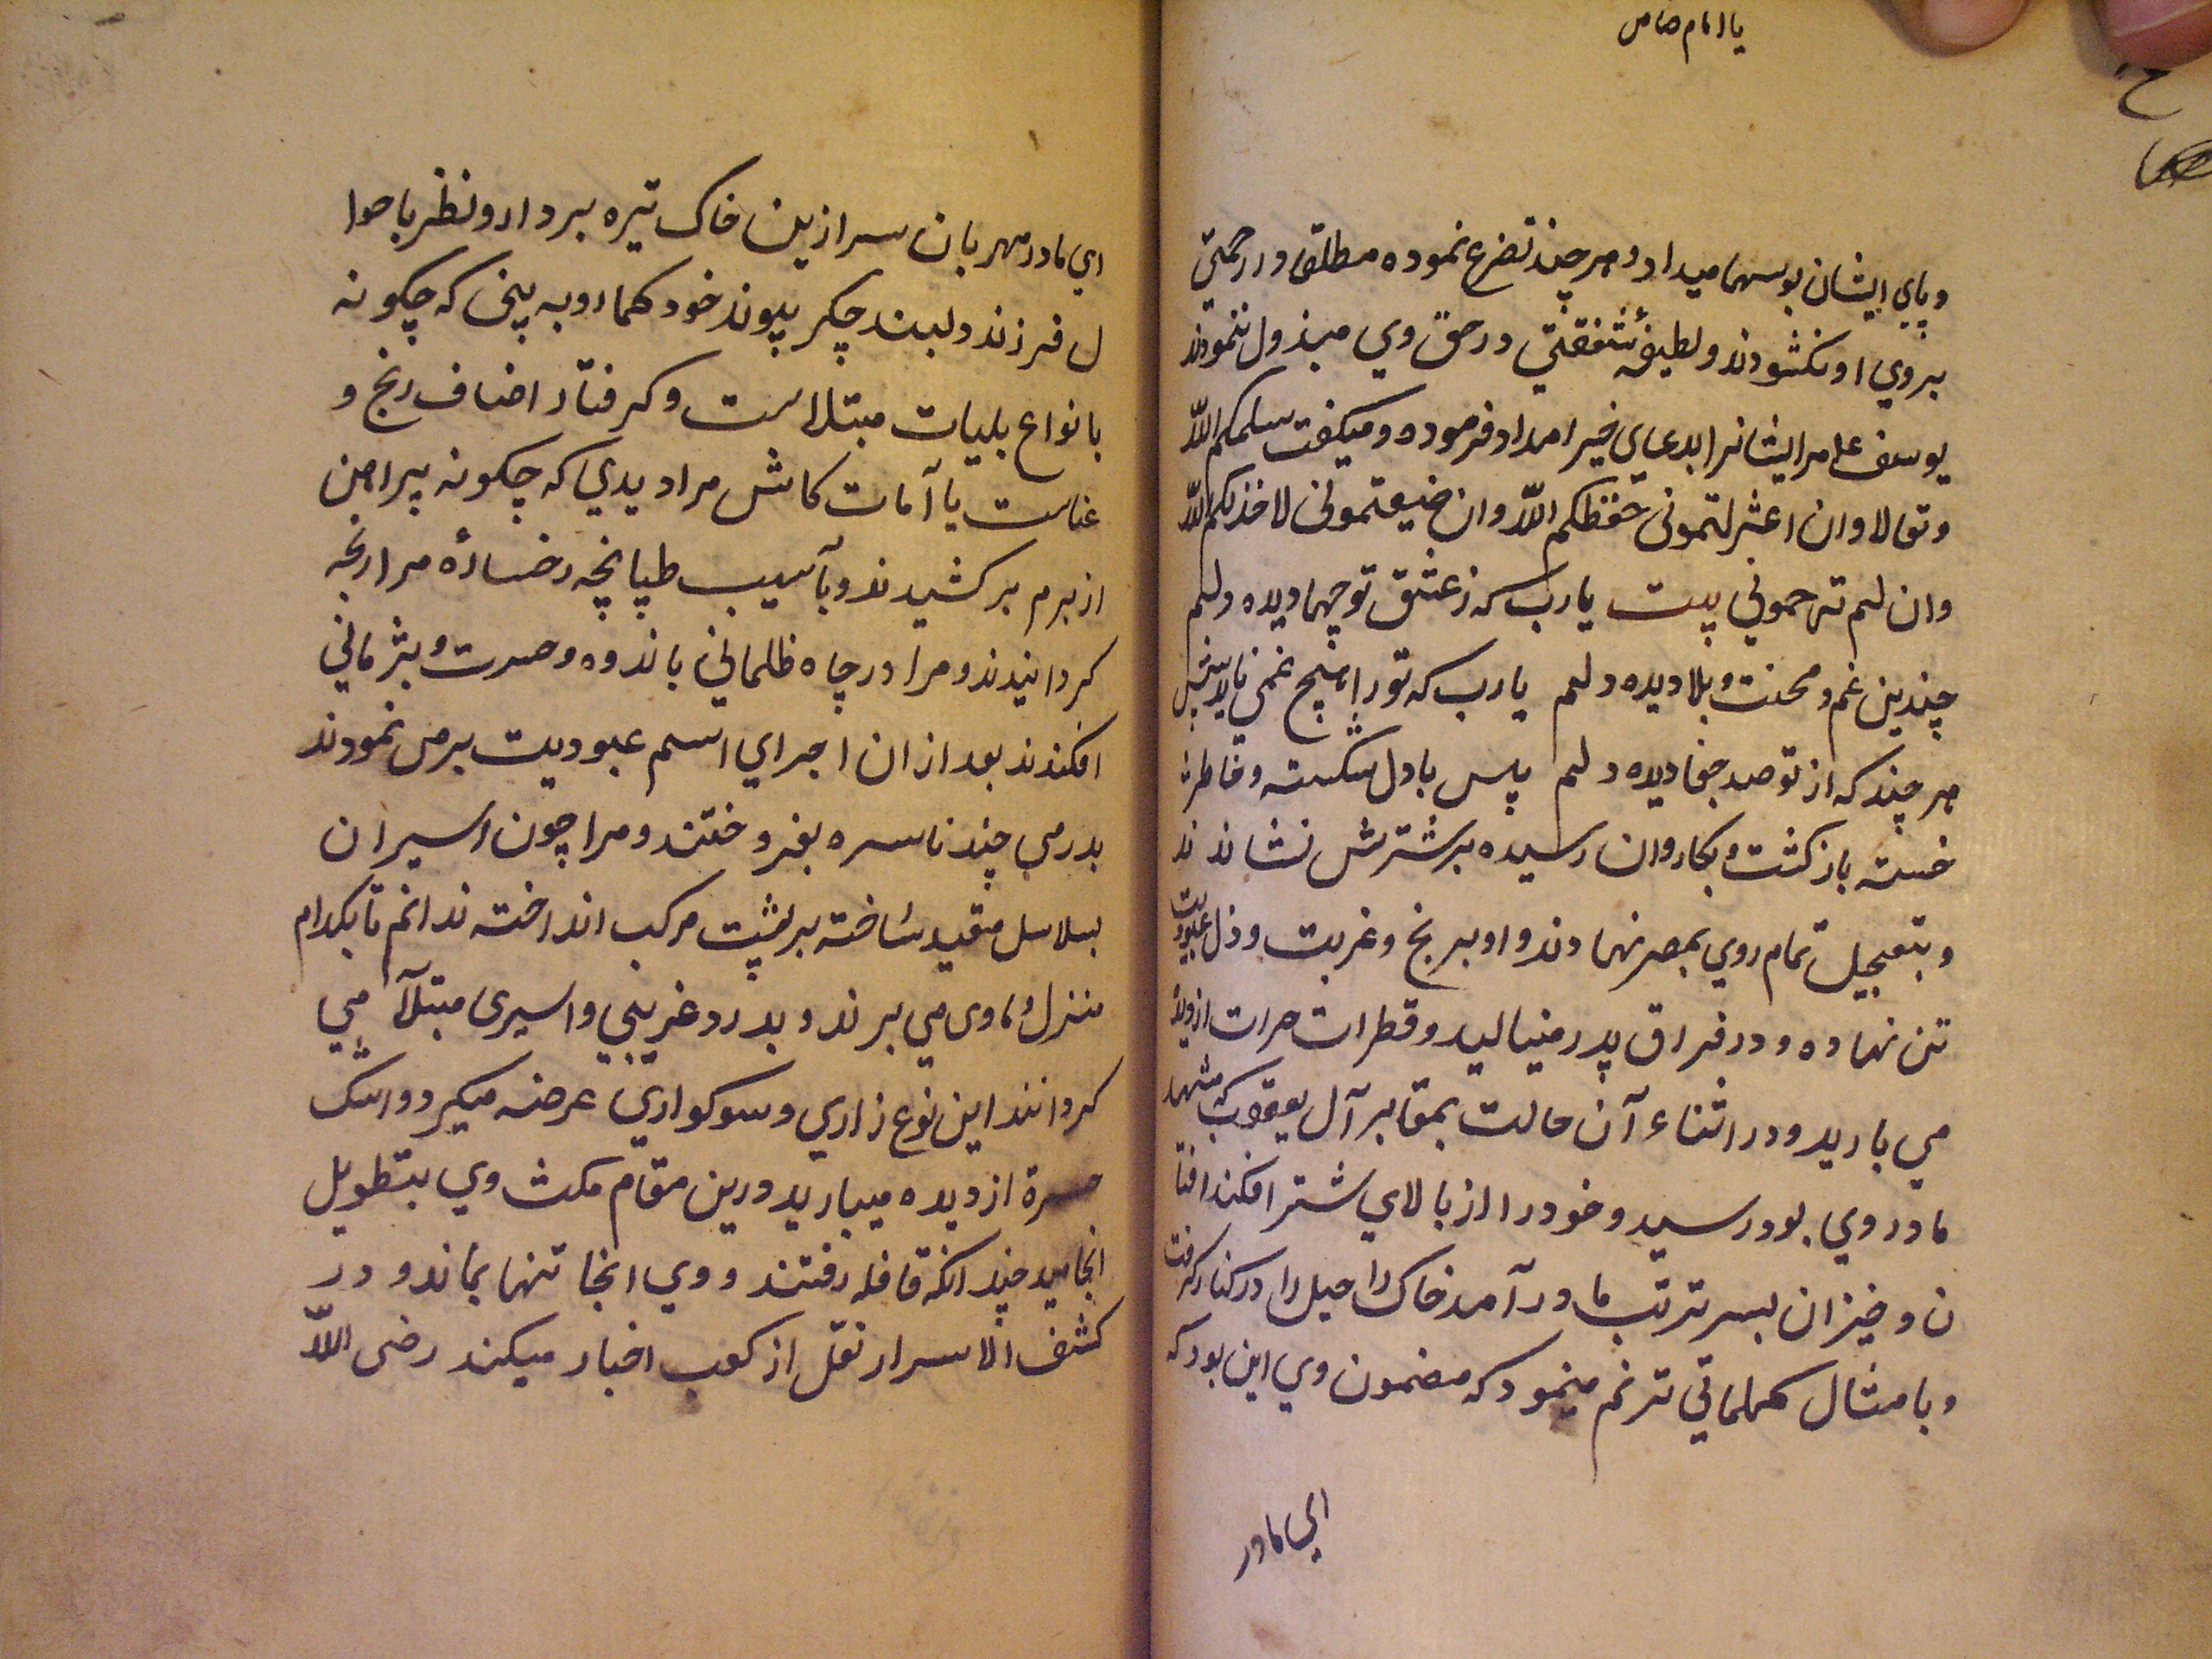 یا امام ضامن
و پای ایشان بوسها میداد و هر چند تضرع نموده مطلقا در رحمتی
بروی او نکشودند و لطیفهٔ شفقتی در حق وی مبذول ننمودند
یوسف علم مر ایشانرا بدعای خیر امداد فرموده و میکفت سلمکم اللّه
وتعالا وان اعثرلتمونی حفظکم اللّه وان ضیعتمونی لا خذلکم اللّه
وان لم ترحمونی بیت یارب که ز عشق تو چها دیده دلم
چندین غم و محنت و بلا دیده دلم یارب که تو را هیچ غمی ناید پیش
هر چند که از تو صد جفا دیده دلم پس با دل شکسته و خاطر
خسته باز کشت و بکاروان رسیده بر شترش نشاندند
و بتعجیل تمام روی بمصر نهادند و او برنج و غربت و ذل عبودیت
تن نهاده و در فراق پدر مینالید و قطرات حرات از دیده
می بارید و در اثناء آن حالت بمقابر آل یعقوب که مشهد
مادر وی بود رسید و خود را از بالای شتر افکند افتا
ن و خیزان بسر تربت مادر آمد خاک راحیل را در کنار کرفت
و با مثال کلماتی ترنم مینمود که مضمون وی این بود که
ای مادر
ای مادر مهربان سر ازین خاک تیره بردار و نظر باحوا
ل فرزند دلبند جکر پیوند خود کمار و به بین که چکونه
بانواع بلیات مبتلا است و کرفتار اصناف رنج و
عناست یا آمات کاش مرا دیدی که چکونه پیراهن
از برم بر کشیدند و بآسیب طپانچه رخسارهٔ مرا رنجه
کردانیدند و مرا در چاه ظلمانی باندوه و حسرت و پشمانی
افکندند بعد از ان اجرای اسم عبودیت بر من نمودند
بدرمی چند ناسره بفروختند و مرا چون اسیران
بسلاسل مقید ساخته بر پشت مرکب انداخته ندانم تا بکدام
منزل و ماوی می برند و بدرد غریبی و اسیری مبتلا می
کردانند این نوع زاری و سوکواری عرضه میکرد و اشک
حسرة از دیده میبارید درین مقام مکث وی بتطویل
انجامید چندانکه قافله رفتند و وی انجا تنها بماند و در
کشف الاسرار نقل از کعب اخبار میکند رضی اللّه